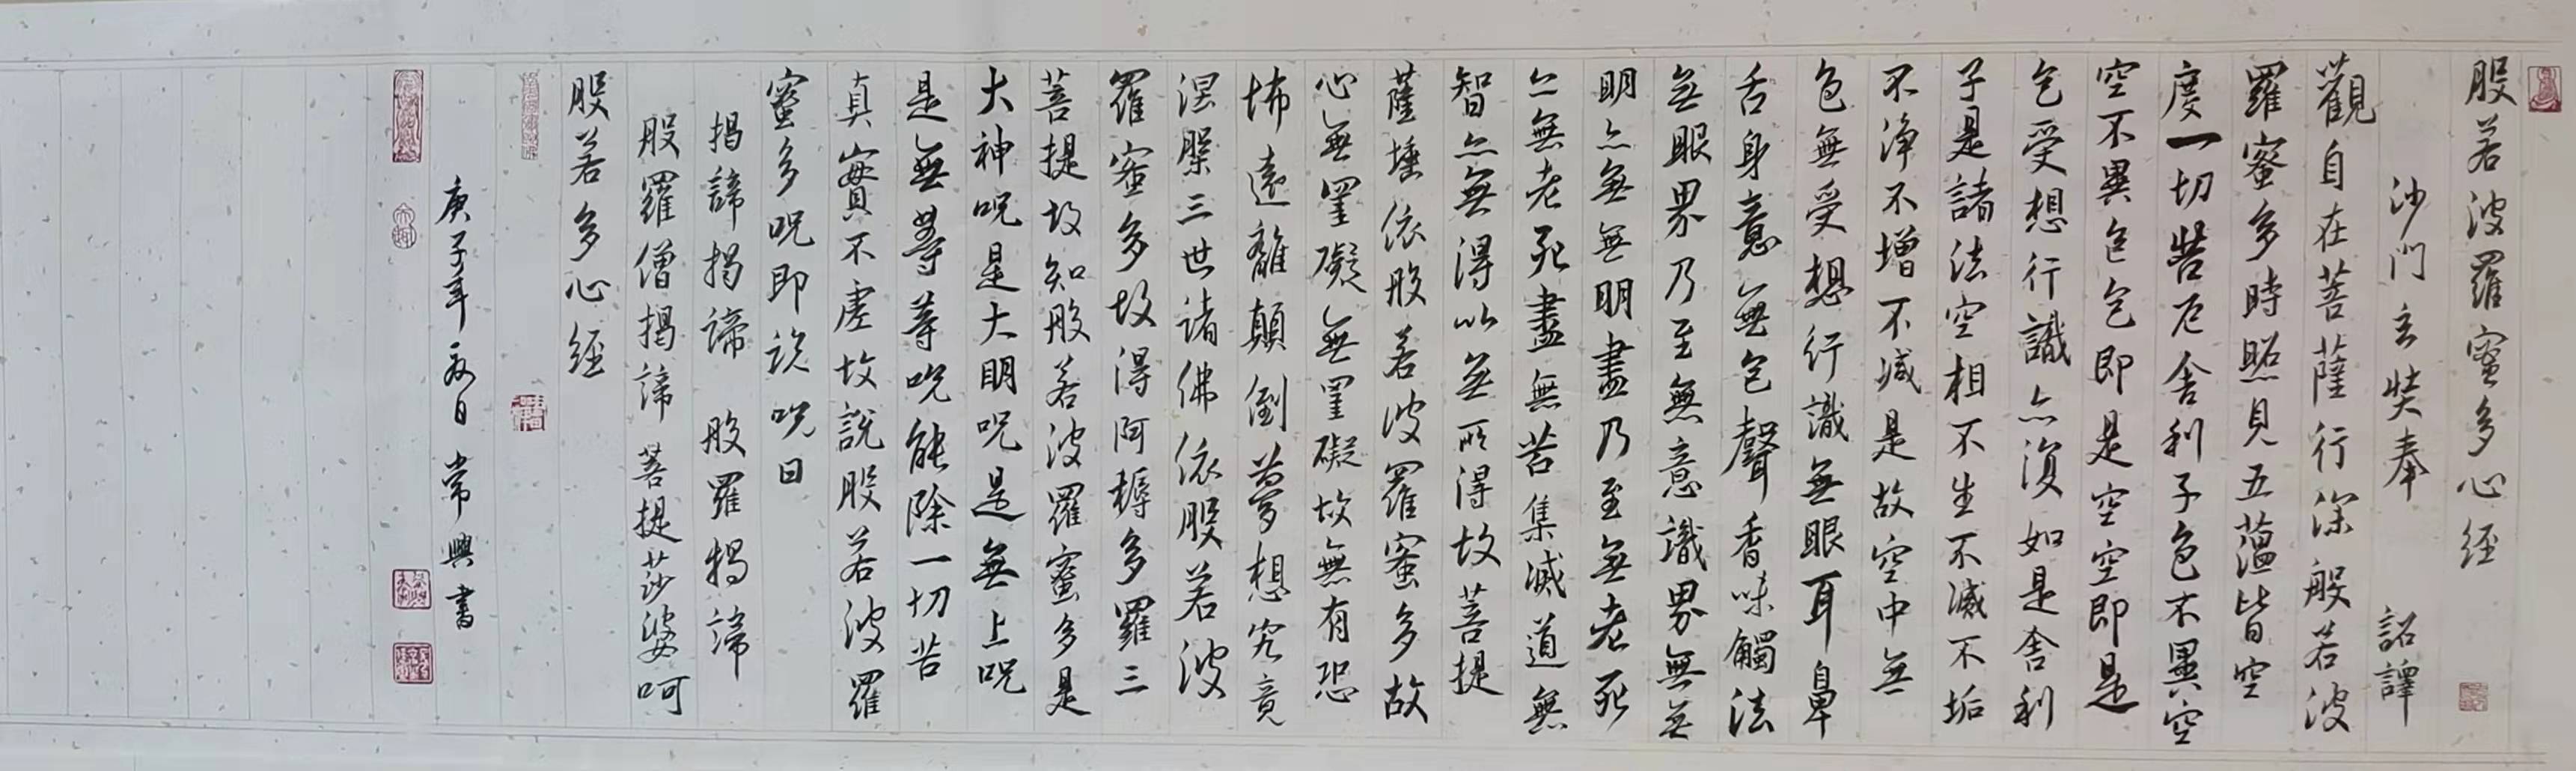 般若波羅蜜多心経
沙門玄奘奉 詔譯
觀自在菩薩行深般若波
羅蜜多時照見五蘊皆空
度一切苦厄舍利子色不異空
空不異色色即是空空即是
色受想行識亦復如是舍利
子是諸法空相不生不滅不垢
不淨不增不減是故空中無
色無受想行識無眼耳鼻
舌身意無色聲香味觸法
無眼界乃至無意識界無無
明亦無無明盡乃至無老死
亦無老死盡無苦集滅道無
智亦無得以無所得故菩提
薩埵依般若波羅蜜多故
心無罣礙無罣礙故無有恐
怖遠離顛倒夢想究竟
涅槃三世諸佛依般若波
羅蜜多故得阿耨多羅三
菩提故知般若波羅蜜多是
大神呪是大明呪是無上呪
是無等等呪能除一切苦
真實不虛故說般若波羅
蜜多呪即說呪曰
揭諦揭諦 般羅揭諦
般羅僧揭諦 菩提莎婆呵
般若多心経
庚子年 日 常興書